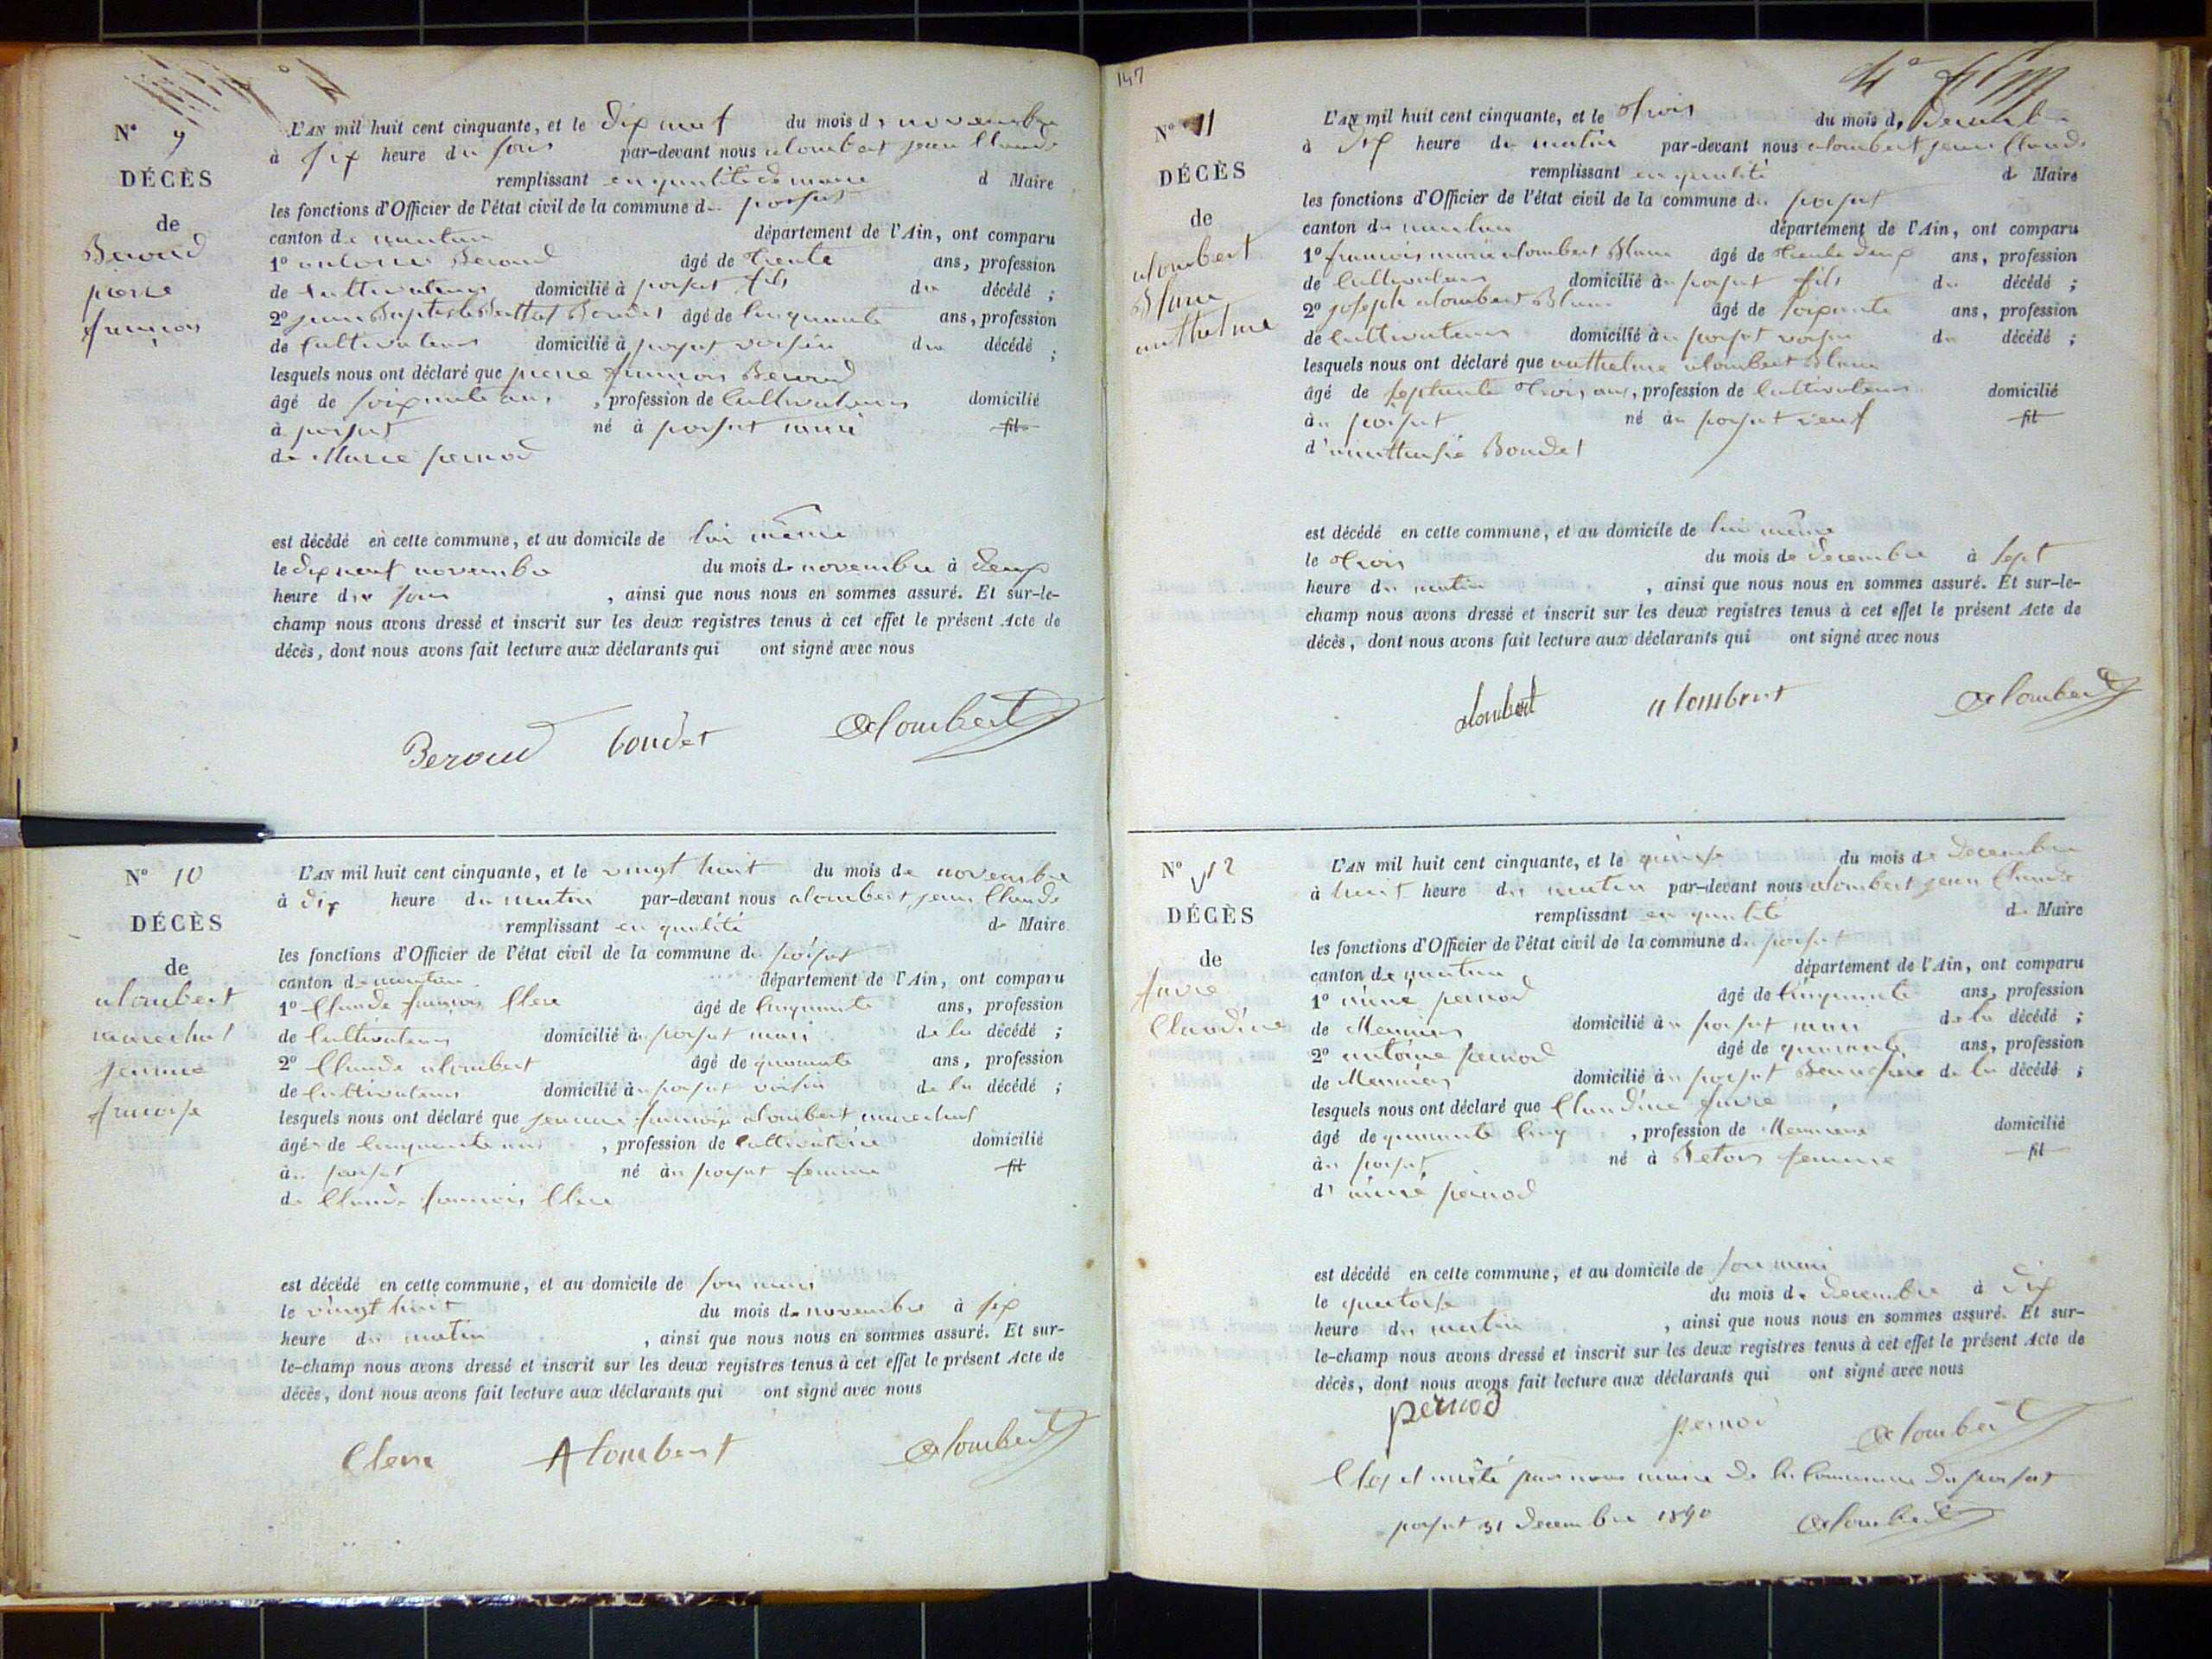 N° 9
DÉCÈS
de
Beroud
pierre
françois
L'AN mil huit cent cinquante, et le dix neuf du mois de novembre
à six heure du soir par-devant nous alombert jean Claude
remplissant en qualité de maire d Maire
les fonctions d'Officier de l'état civil de la commune de
canton de nantua département de l'Ain, ont comparu
1° antoine Beroud âgé de trente ans, profession
de Cultivateur domicilié à fils du décédé ;
2° jean Baptiste Boudet âgé de Cinquante ans, profession
de Cultivateur domicilié à voisin du décédé ;
lesquels nous ont déclaré que pierre françois Beroud
âgé de soixante ans, profession de Cultivateur domicilié
à né à mari fil
de Marie pernod
est décédé en cette commune, et au domicile de lui même
le dix neuf novembre du mois de novembre à deux
heure du soir, ainsi que nous nous en sommes assuré. Et sur-le-
champ nous avons dressé et inscrit sur les deux registres tenus à cet effet le présent Acte de
décès, dont nous avons fait lecture aux déclarants qui ont signé avec nous
Beroud boudet Alombert
N° 10
DÉCÈS
de
alombert
marechal
jeanne
françoise
L'AN mil huit cent cinquante, et le vingt huit du mois de novembre
à dix heure du matin par-devant nous alombert jean Claude
remplissant en qualité de Maire
les fonctions d'Officier de l'état civil de la commune du
canton de nantua département de l'Ain, ont comparu
1° Claude françois Clerc âgé de Cinquante ans, profession
de Cultivateur domicilié à mari de la décédé ;
2° Claude alombert âgé de quarante ans, profession
de Cultivateur domicilié à voisin de la décédé ;
lesquels nous ont déclaré que jeanne françoise alombert marechal
âgé de Cinquante ans, profession de Cultivatrice domicilié
à né à femme fil
de Claude françois Clerc
est décédé en cette commune, et au domicile de son mari
le vingt huit du mois de novembre à six
heure du matin, ainsi que nous nous en sommes assuré. Et sur-
le-champ nous avons dressé et inscrit sur les deux registres tenus à cet effet le présent Acte de
décès, dont nous avons fait lecture aux déclarants qui ont signé avec nous
Clerc Alombert Alombert
147
N° 11
DÉCÈS
de
alombert
Blanc
anthelme
L'AN mil huit cent cinquante, et le trois du mois de Decembre
à dix heure du matin par-devant nous alombert jean Claude
remplissant en qualité de Maire
les fonctions d'Officier de l'état civil de la commune du
canton de nantua département de l'Ain, ont comparu
1° françois marie alombert Blanc âgé de trente deux ans, profession
de Cultivateur domicilié à fils du décédé ;
2° joseph alombert Blanc âgé de soixante ans, profession
de Cultivateur domicilié à voisin du décédé ;
lesquels nous ont déclaré que anthelme alombert Blanc
âgé de septante trois ans, profession de Cultivateur domicilié
à né à veuf fil
d' Boudet
est décédé en cette commune, et au domicile de lui même
le trois du mois de decembre à sept
heure du matin, ainsi que nous nous en sommes assuré. Et sur-le-
champ nous avons dressé et inscrit sur les deux registres tenus à cet effet le présent Acte de
décès, dont nous avons fait lecture aux déclarants qui ont signé avec nous
alombert alombert Alombert
N° 12
DÉCÈS
de
favre
Claudine
L'AN mil huit cent cinquante, et le quinze du mois de Decembre
à huit heure du matin par-devant nous alombert jean Claude
remplissant en qualité de Maire
les fonctions d'Officier de l'état civil de la commune du
canton de nantua département de l'Ain, ont comparu
1° aimé pernod âgé de Cinquante ans, profession
de Meunier domicilié à mari de la décédé ;
2° antoine pernod âgé de quarante ans, profession
de Meunier domicilié à Beau frère de la décédé ;
lesquels nous ont déclaré que Claudine favre
âgé de quarante Cinq, profession de Meunière domicilié
à né à femme fil
d' aimé pernod
est décédé en cette commune, et au domicile de son mari
le quatorze du mois de Decembre à dix
heure du matin, ainsi que nous nous en sommes assuré. Et sur-
le-champ nous avons dressé et inscrit sur les deux registres tenus à cet effet le présent Acte de
décès, dont nous avons fait lecture aux déclarants qui ont signé avec nous
pernod pernod Alombert
Clos et arrêté par nous maire de la Commune du
31 decembre 1850 Alombert